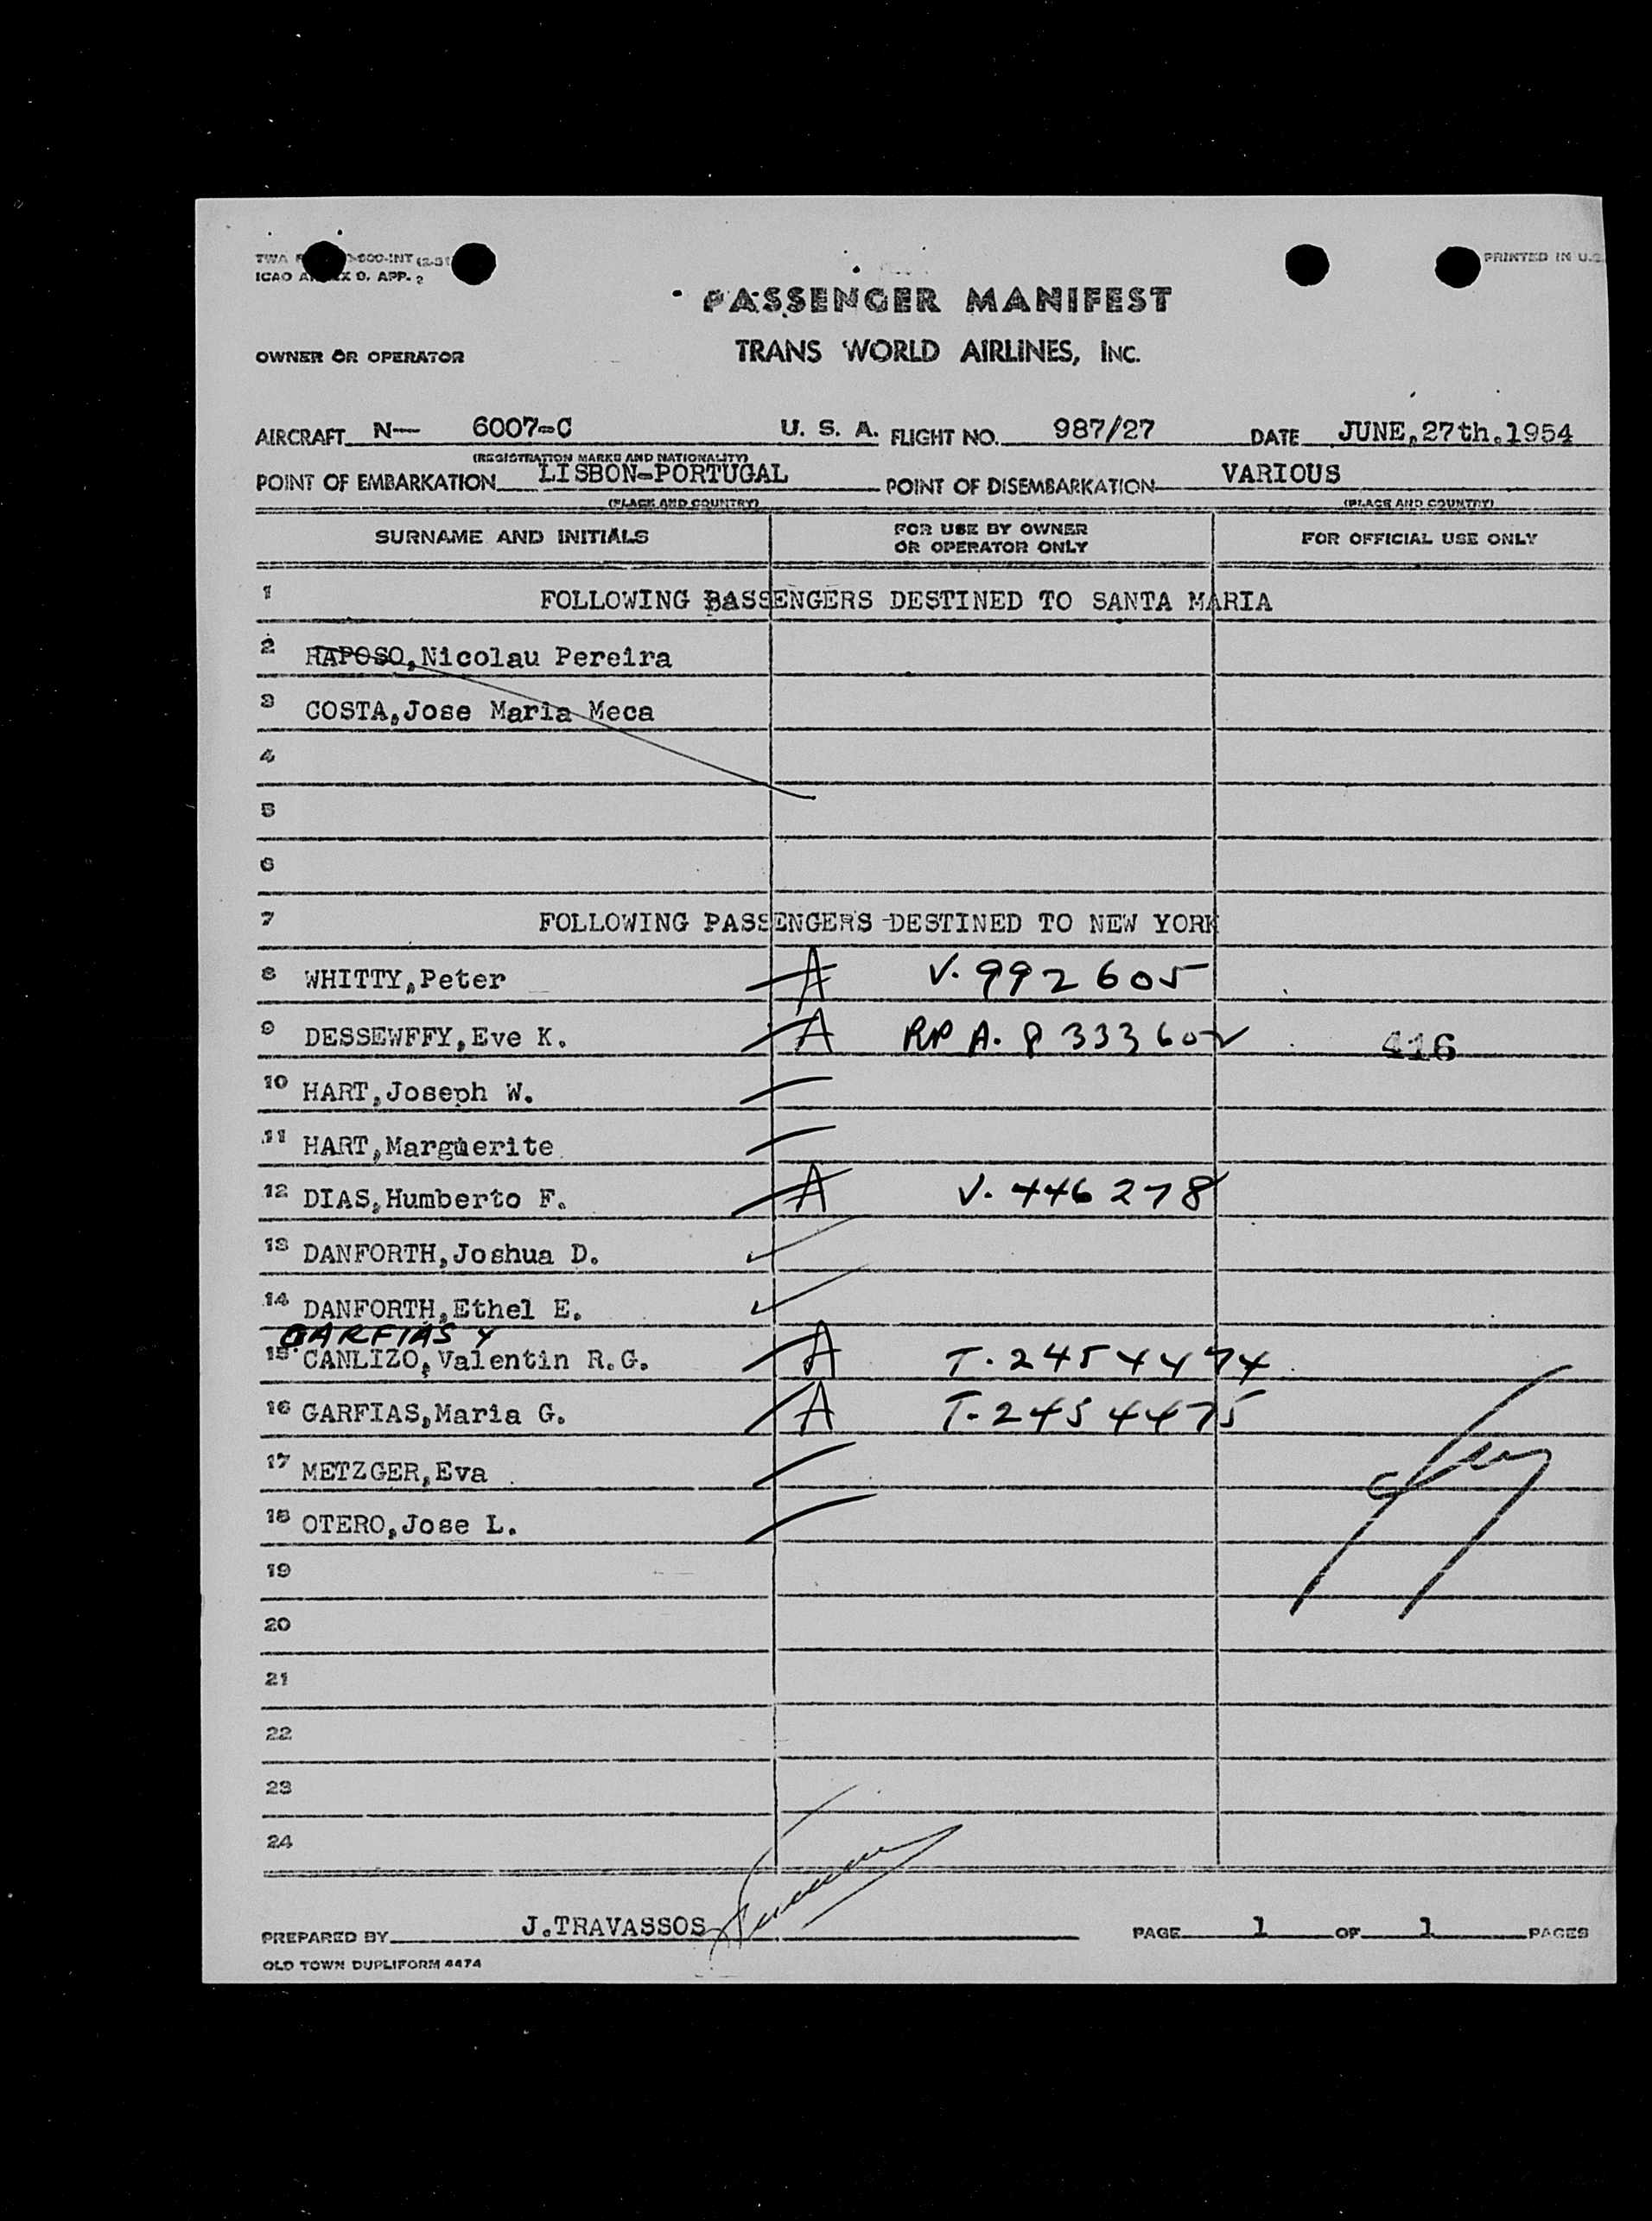 TWA 
ICAO APP. 2
PRINTED IN U.S.
PASSENGER MANIFEST
OWNER OR OPERATOR TRANS WORLD AIRLINES, INC.
AIRCRAFT N— 6007-C U. S. A. FLIGHT NO. 987/27 DATE JUNE, 27th. 1954
(REGISTRATION MARKS AND NATIONALITY)
POINT OF EMBARKATION LISBON-PORTUGAL POINT OF DISEMBARKATION VARIOUS
(PLACE AND COUNTRY) (PLACE AND COUNTRY)
SURNAME AND INITIALS FOR USE BY OWNER OR OPERATOR ONLY FOR OFFICIAL USE ONLY
1 FOLLOWING PASSENGERS DESTINED TO SANTA MARIA
2 RAPOSO,Nicolau Pereira
3 COSTA,Jose Maria Meca
4
5
6
7 FOLLOWING PASSENGERS DESTINED TO NEW YORK
8 WHITTY,Peter A V. 992605
9 DESSEWFFY,Eve K. A RP A. P 333602 416
10 HART,Joseph W.
11 HART,Marguerite
12 DIAS,Humberto F. A V. 446278
13 DANFORTH,Joshua D.
14 DANFORTH,Ethel E.
GARFIAS Y
15 CANLIZO,Valentin R.G. A T. 2454474
16 GARFIAS,Maria G. A T. 2454475
17 METZGER,Eva
18 OTERO,Jose L.
19
20
21
22
23
24
PREPARED BY J.TRAVASSOS PAGE 1 OF 1 PAGES
OLD TOWN DUPLIFORM 4474